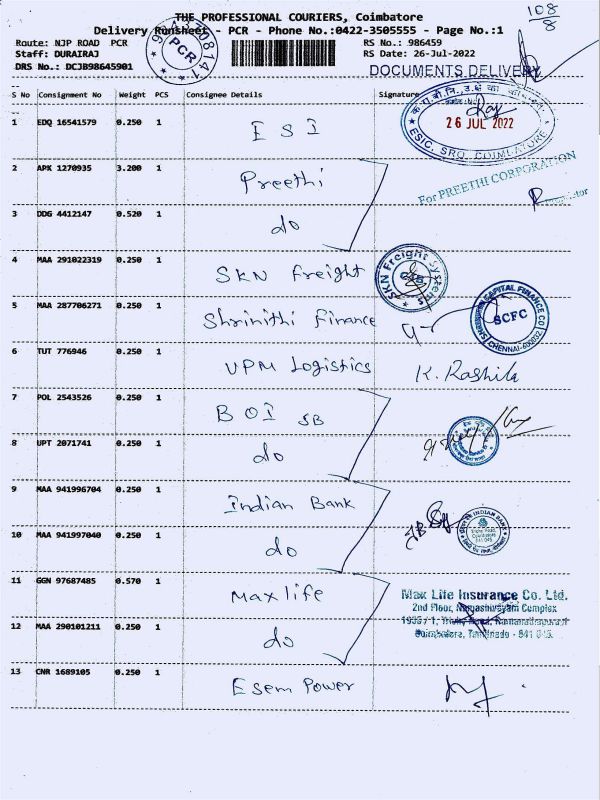 108
8
THE PROFESSIONAL COURIERS, Coimbatore
Delivery Runsheet - PCR - Phone No.:0422-3505555 - Page No.:1
Route: NJP ROAD PCR
RS No.: 986459
Staff: DURAIRAJ
RS Date: 26-Jul-2022
DRS No.: DCJB98645901
PCR
DOCUMENTS DELIVERY
S No Consignment No Weight PCS Consignee Details Signature
1 EDQ 16541579 0.250 1 ESI
26 JUL 2022
ESIC, SRO, COIMBATORE
2 APK 1270935 3.200 1 Preethi
For PREETHI CORPORATION
3 DDG 4412147 0.520 1 do
4 MAA 291022319 0.250 1 SKN Freight
SKN Freight Systems
5 MAA 287706271 0.250 1 Shrinithi Finance
CAPITAL FINANCE CO
SCFC
CHENNAI-600032
6 TUT 776946 0.250 1 UPM Logistics K. Rashila
7 POL 2543526 0.250 1 BOI SB
8 UPT 2071741 0.250 1 do
9 MAA 941996704 0.250 1 Indian Bank
INDIAN BANK
10 MAA 941997040 0.250 1 do
11 GGN 97687485 0.570 1 Maxlife
Max Life Insurance Co. Ltd.
2nd Floor, Complex
12 MAA 290101211 0.250 1 do
Coimbatore, Tamilnadu - 641 045.
13 CNR 1689105 0.250 1 Esem Power